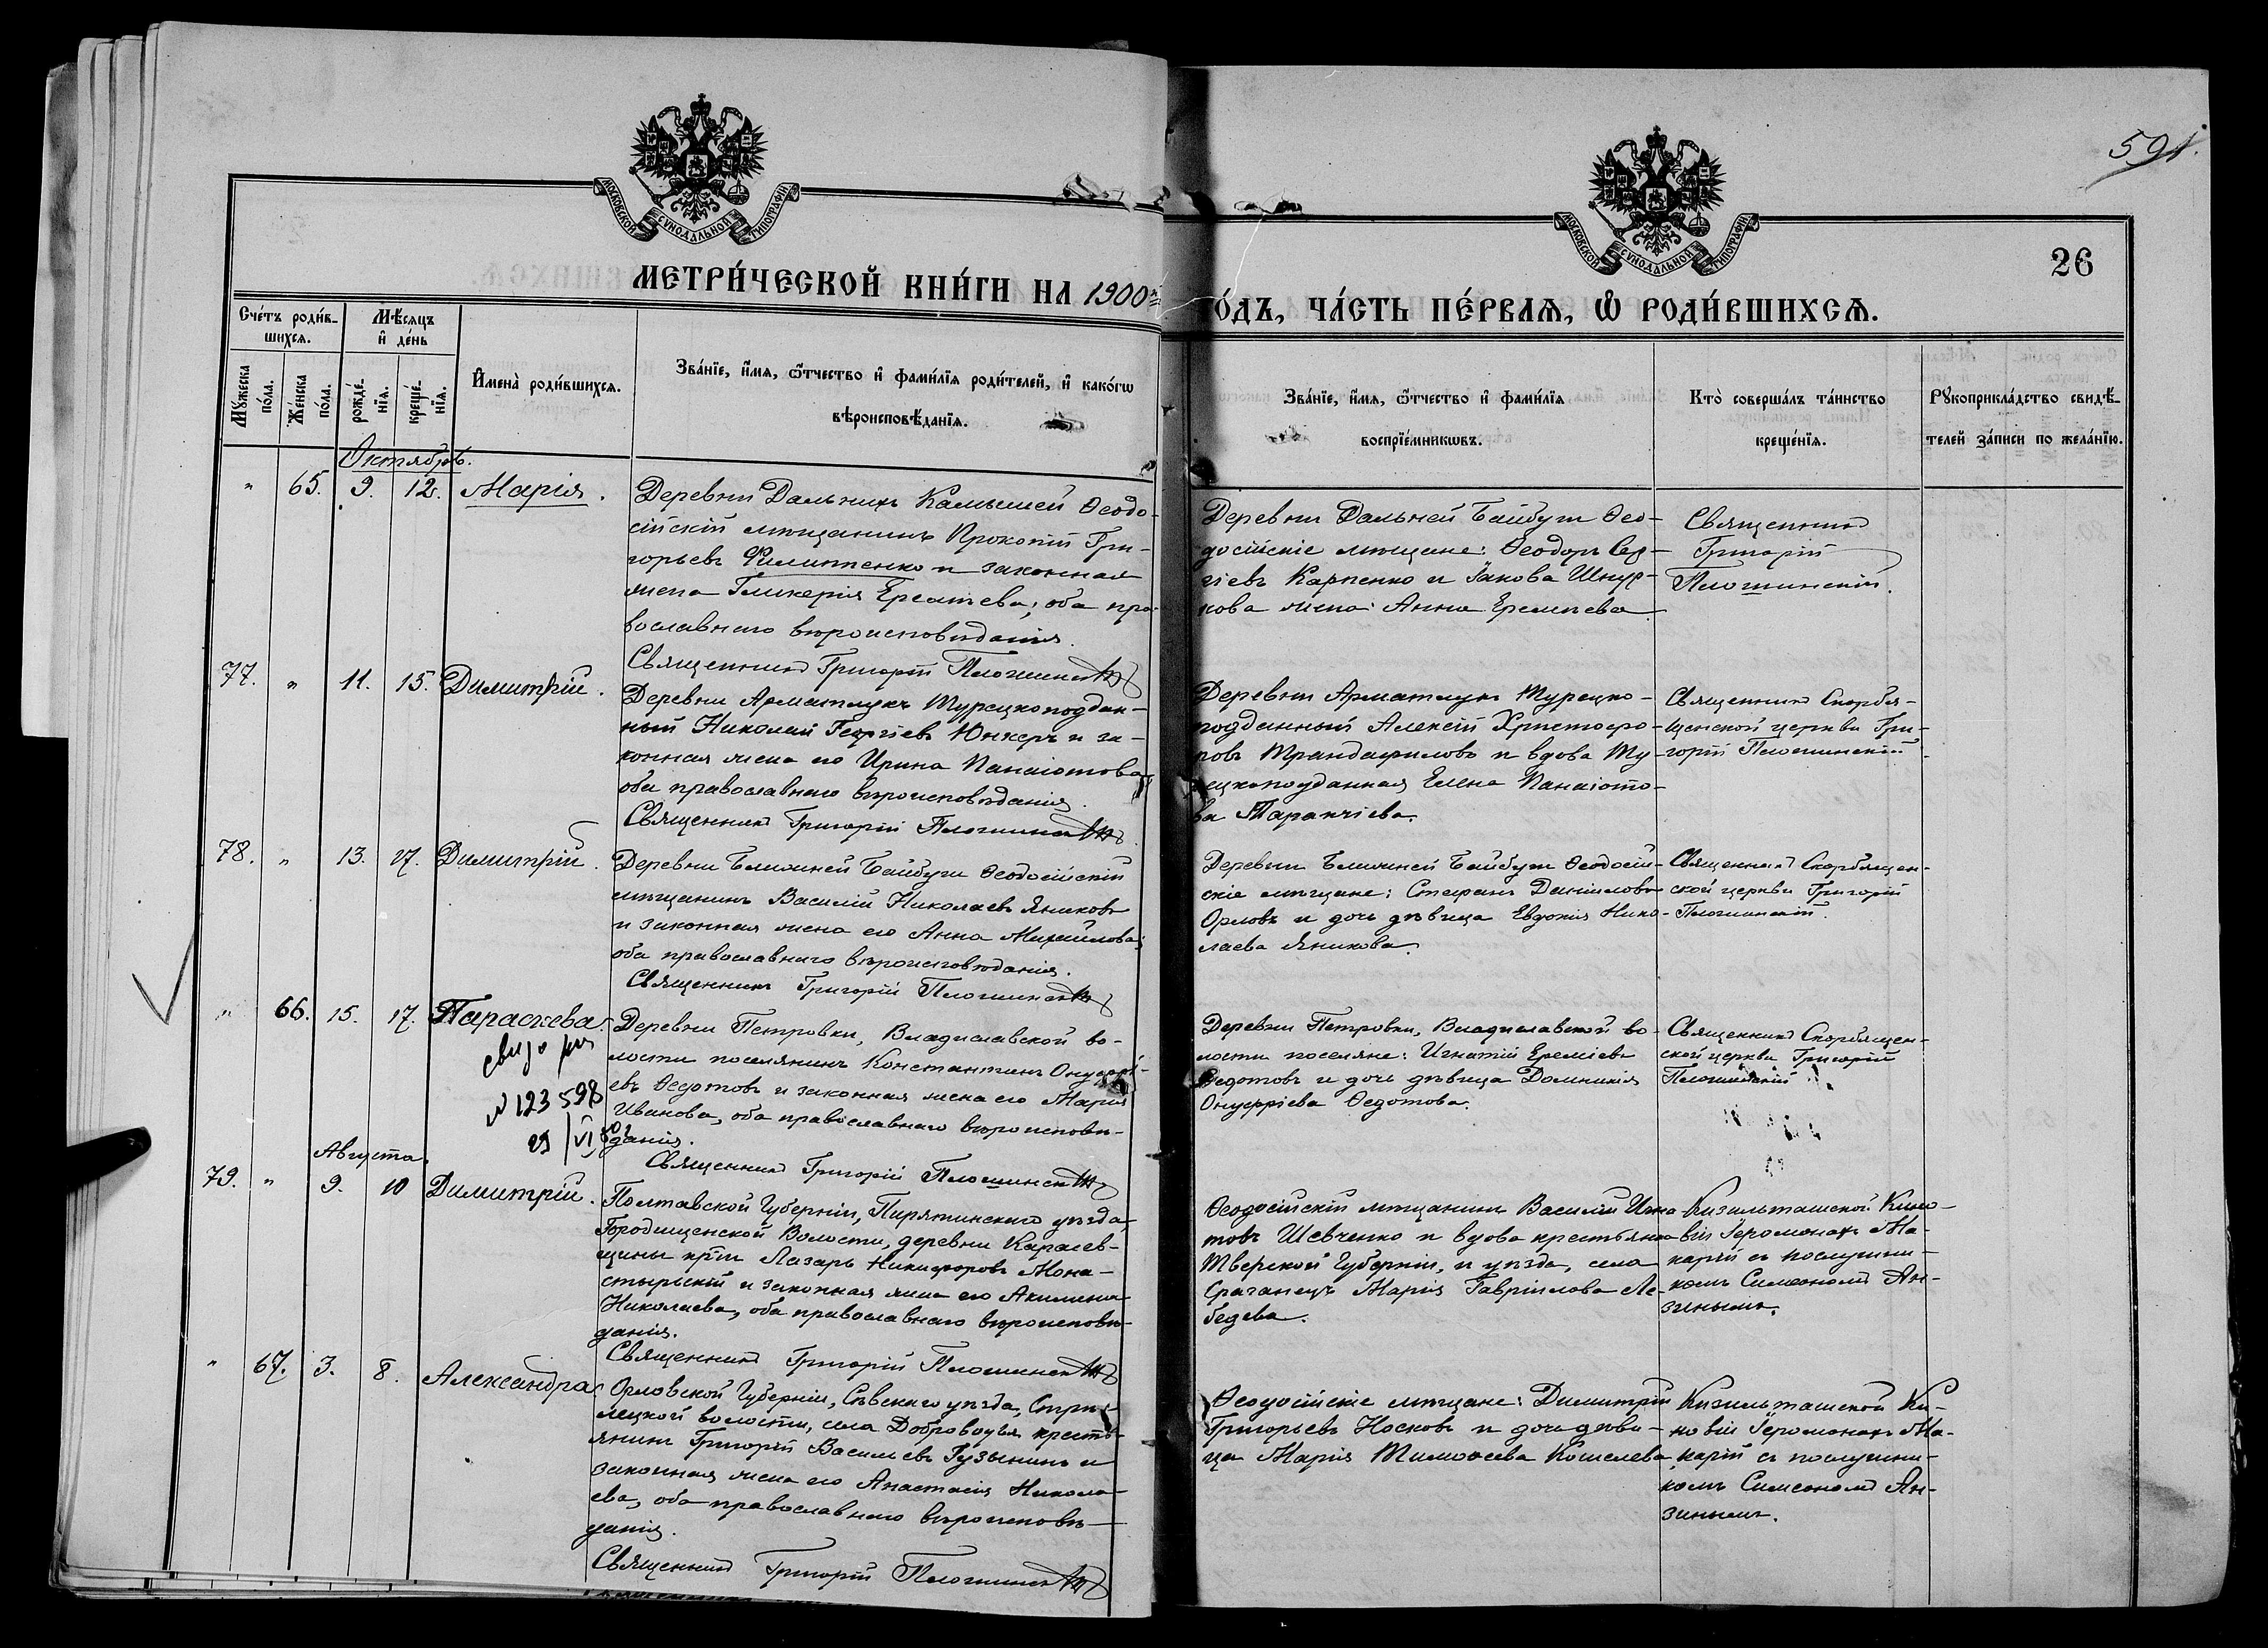 591.
26
МОСКОВСКОЙ СѴНОДАЛЬНОЙ ТИПОГРАФІИ
МОСКОВСКОЙ СѴНОДАЛЬНОЙ ТИПОГРАФІИ
МЕТРИ́ЧЕСКОЙ КНИ́ГИ НА 1900й
ГО́ДЪ, ЧА́СТЬ ПЕ́РВАѦ, Ѡ҆ РОДИ́ВШИХСѦ.
Сче́тъ роди́в-
шихсѧ.
Мѣ́сѧцъ
и҆ де́нь
Мꙋ́жеска по́ла.
Же́нска по́ла.
рожде́нїѧ.
креще́нїѧ.
И҆мена̀ роди́вшихсѧ.
Зва́нїе, и҆́мѧ, ѻ҆́тчество и҆ фами́лїѧ роди́телей, и҆ како́гѡ
вѣроисповѣ́данїѧ.
Зва́нїе, и҆́мѧ, ѻ҆́тчество и҆ фами́лїѧ
воспрїе́мникѡвъ.
Кто̀ соверша́лъ та́инство
креще́нїѧ.
Рꙋкоприкла́дство свидѣ́-
телей за́писи по жела́нїю.
Октябрь.
" 65. 9. 12. Марія.
Деревни Дальнихъ Камышей Ѳеодо-
сійскій мѣщанинъ Прокопій Гри-
горьевъ Филипенко и законная
жена Гликерія Ереміева; оба пра-
вославнаго вѣроисповѣданія.
Священникъ Григорій Плошинскій
Деревни Дальней Байбуги Ѳео-
досійскіе мѣщане: Ѳеодоръ Сер-
гіевъ Карпенко и Іакова Шнур-
кова жена Анна Ереміева.
Священникъ
Григорій
Плошинскій.
77. " 11. 15. Димитрій.
Деревни Арматлукъ Турецкоподдан-
ный Николай Георгіевъ Юнкеръ и за-
конная жена его Ирина Панаіотова
оба православнаго вѣроисповѣданія.
Священникъ Григорій Плошинскій
Деревни Арматлукъ Турецко-
подданный Алексій Христофо-
ровъ Трандафиловъ и вдова Ту-
рецкоподданная Елена Панаіото-
ва Таранчіева.
Священникъ Скорбя-
щенской церкви Гри-
горій Плошинскій.
78. " 13. 17. Димитрій.
Деревни Ближней Байбуги Ѳеодосійскій
мѣщанинъ Василій Николаевъ Яниковъ
и законная жена его Анна Михайлова;
оба православнаго вѣроисповѣданія.
Священникъ Григорій Плошинскій
Деревни Ближней Байбуги Ѳеодосій-
скіе мѣщане: Стефанъ Даниловъ
Орловъ и дочь дѣвица Евдокія Нико-
лаева Яникова.
Священникъ Скорбящен-
ской церкви Григорій
Плошинскій.
" 66. 15. 17. Параскева.
№ 123598
Деревни Петровки, Владиславской во-
лости поселянинъ Константинъ Онуфрі-
евъ Ѳедотовъ и законная жена его Марія
Иванова, оба православнаго вѣроисповѣ-
данія.
Священникъ Григорій Плошинскій
Деревни Петровки, Владиславской во-
лости поселяне: Игнатій Ереміевъ
Ѳедотовъ и дочь дѣвица Домникія
Онуфріева Ѳедотова.
Священникъ Скорбящен-
ской церкви Григорій
Плошинскій
Августа.
79. " 9. 10 Димитрій.
Полтавской Губерніи, Пирятинскаго уѣзда,
Городищенской Волости, деревни Карасев-
щины кр̃нъ Лазарь Никифоровъ Мона-
стырскій и законная жена его Акилина
Николаева, оба православнаго вѣроисповѣ-
данія.
Священникъ Григорій Плошинскій
Ѳеодосійскій мѣщанинъ Василій Игна-
товъ Шевченко и вдова крестьянка
Тверской Губерніи, и уѣзда, села
Марія Гавріилова Ле-
бедева.
Кизильташской Кино-
віи Іеромонахъ Ма-
карій съ послушни-
комъ Симеономъ Ан-
зинымъ.
" 67. 3. 8. Александра.
Орловской Губерніи, Сѣвскаго уѣзда, Стрѣ-
лецкой волости, села Доброводья кресть-
янинъ Григорій Васильевъ Гузынинъ и
законная жена его Анастасія Никола-
ева, оба православнаго вѣроисповѣ-
данія.
Священникъ Григорій Плошинскій
Ѳеодосійскіе мѣщане: Димитрій
Григорьевъ Носковъ и дочь дѣви-
ца Марія Тимоѳеева Кошелева
Кизильташской Ки-
новіи Іеромонахъ Ма-
карій съ послушни-
комъ Симеономъ Ан-
зинымъ.